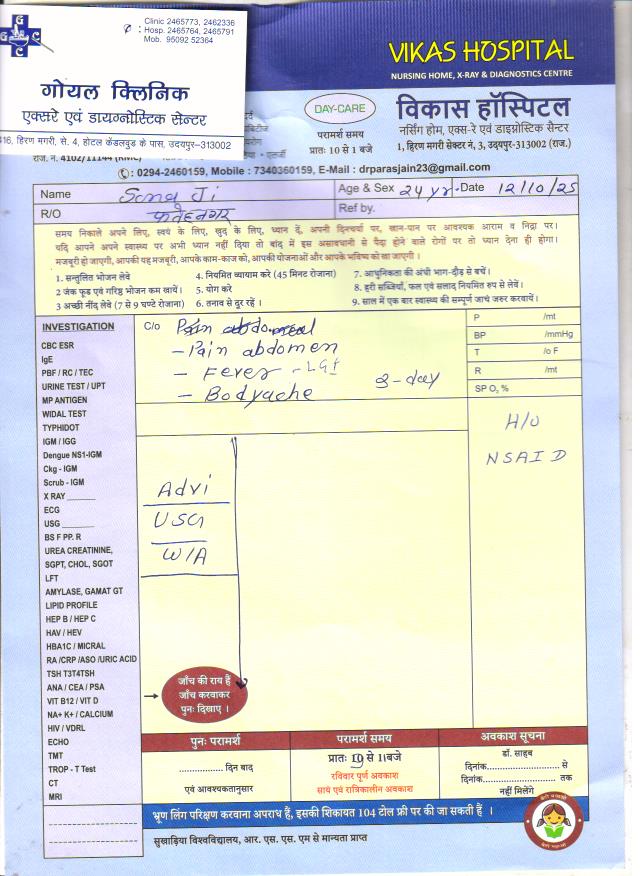 Clinic 2465773, 2462336
: Hosp. 2465764, 2465791
Mob. 95092 52364
गोयल क्लिनिक
एक्सरे एवं डायग्नोस्टिक सेन्टर
416, हिरण मगरी, से. 4, होटल केंडलवुड के पास, उदयपुर-313002
VIKAS HOSPITAL
NURSING HOME, X-RAY & DIAGNOSTICS CENTRE
DAY-CARE
परामर्श समय
प्रातः 10 से 1 बजे
विकास हॉस्पिटल
नर्सिंग होम, एक्स-रे एवं डाइग्नोस्टिक सेन्टर
1, हिरण मगरी सेक्टर नं. 3, उदयपुर-313002 (राज.)
राज. नं. 4102/11144 (RMC)
: 0294-2460159, Mobile : 7340360159, E-Mail : drparasjain23@gmail.com
Name Ji Age & Sex 24 yr. Date 12/10/25
R/O फतेहनगर Ref by.
समय निकाले अपने लिए, स्वयं के लिए, खुद के लिए, ध्यान दें, अपनी दिनचर्या पर, खान-पान पर आवश्यक आराम व निद्रा पर।
यदि आपने अपने स्वास्थ्य पर अभी ध्यान नहीं दिया तो बांद में इस असावधानी से पैदा होने वाले रोगों पर तो ध्यान देना ही होगा।
मजबूरी हो जाएगी, आपकी यह मजबूरी, आपके काम-काज को, आपकी योजनाओं और आपके भविष्य को खा जाएगी।
1. सन्तुलित भोजन लेवे 4. नियमित व्यायाम करे (45 मिनट रोजाना) 7. आधुनिकता की अंधी भाग-दौड़ से बचें।
2 जंक फूड एवं गरिष्ठ भोजन कम खायें। 5. योग करे 8. हरी सब्जियाँ, फल एवं सलाद नियमित रुप से लेवें।
3 अच्छी नींद लेवे (7 से 9 घण्टे रोजाना) 6. तनाव से दूर रहें । 9. साल में एक बार स्वास्थ्य की सम्पूर्ण जाचं जरुर करवायें।
INVESTIGATION
CBC ESR
IgE
PBF / RC / TEC
URINE TEST / UPT
MP ANTIGEN
WIDAL TEST
TYPHIDOT
IGM / IGG
Dengue NS1-IGM
Ckg - IGM
Scrub - IGM
X RAY
ECG
USG
BS F PP. R
UREA CREATININE,
SGPT, CHOL, SGOT
LFT
AMYLASE, GAMAT GT
LIPID PROFILE
HEP B / HEP C
HAV / HEV
HBA1C / MICRAL
RA /CRP /ASO /URIC ACID
TSH T3T4TSH
ANA / CEA / PSA
VIT B12 / VIT D
NA+ K+ / CALCIUM
HIV / VDRL
ECHO
TMT
TROP - T Test
CT
MRI
C/o Pain
- Pain abdomen
- Fever
- Bodyache 3-day
P /mt
BP /mmHg
T /o F
R /mt
SP O, %
H/O
NSAID
Advi
USG
W/A
जाँच की राय हैं
जाँच करवाकर
पुनः दिखाए ।
पुनः परामर्श
................ दिन बाद
एवं आवश्यकतानुसार
परामर्श समय
प्रातः 10 से 1 बजे
रविवार पूर्ण अवकाश
सायं एवं रात्रिकालीन अवकाश
अवकाश सूचना
डॉ. साहब
दिनांक................ से
दिनांक................ तक
नहीं मिलेंगे
भ्रूण लिंग परिक्षण करवाना अपराध हैं, इसकी शिकायत 104 टोल फ्री पर की जा सकती हैं ।
सुखाड़िया विश्वविद्यालय, आर. एस. एस. एम से मान्यता प्राप्त